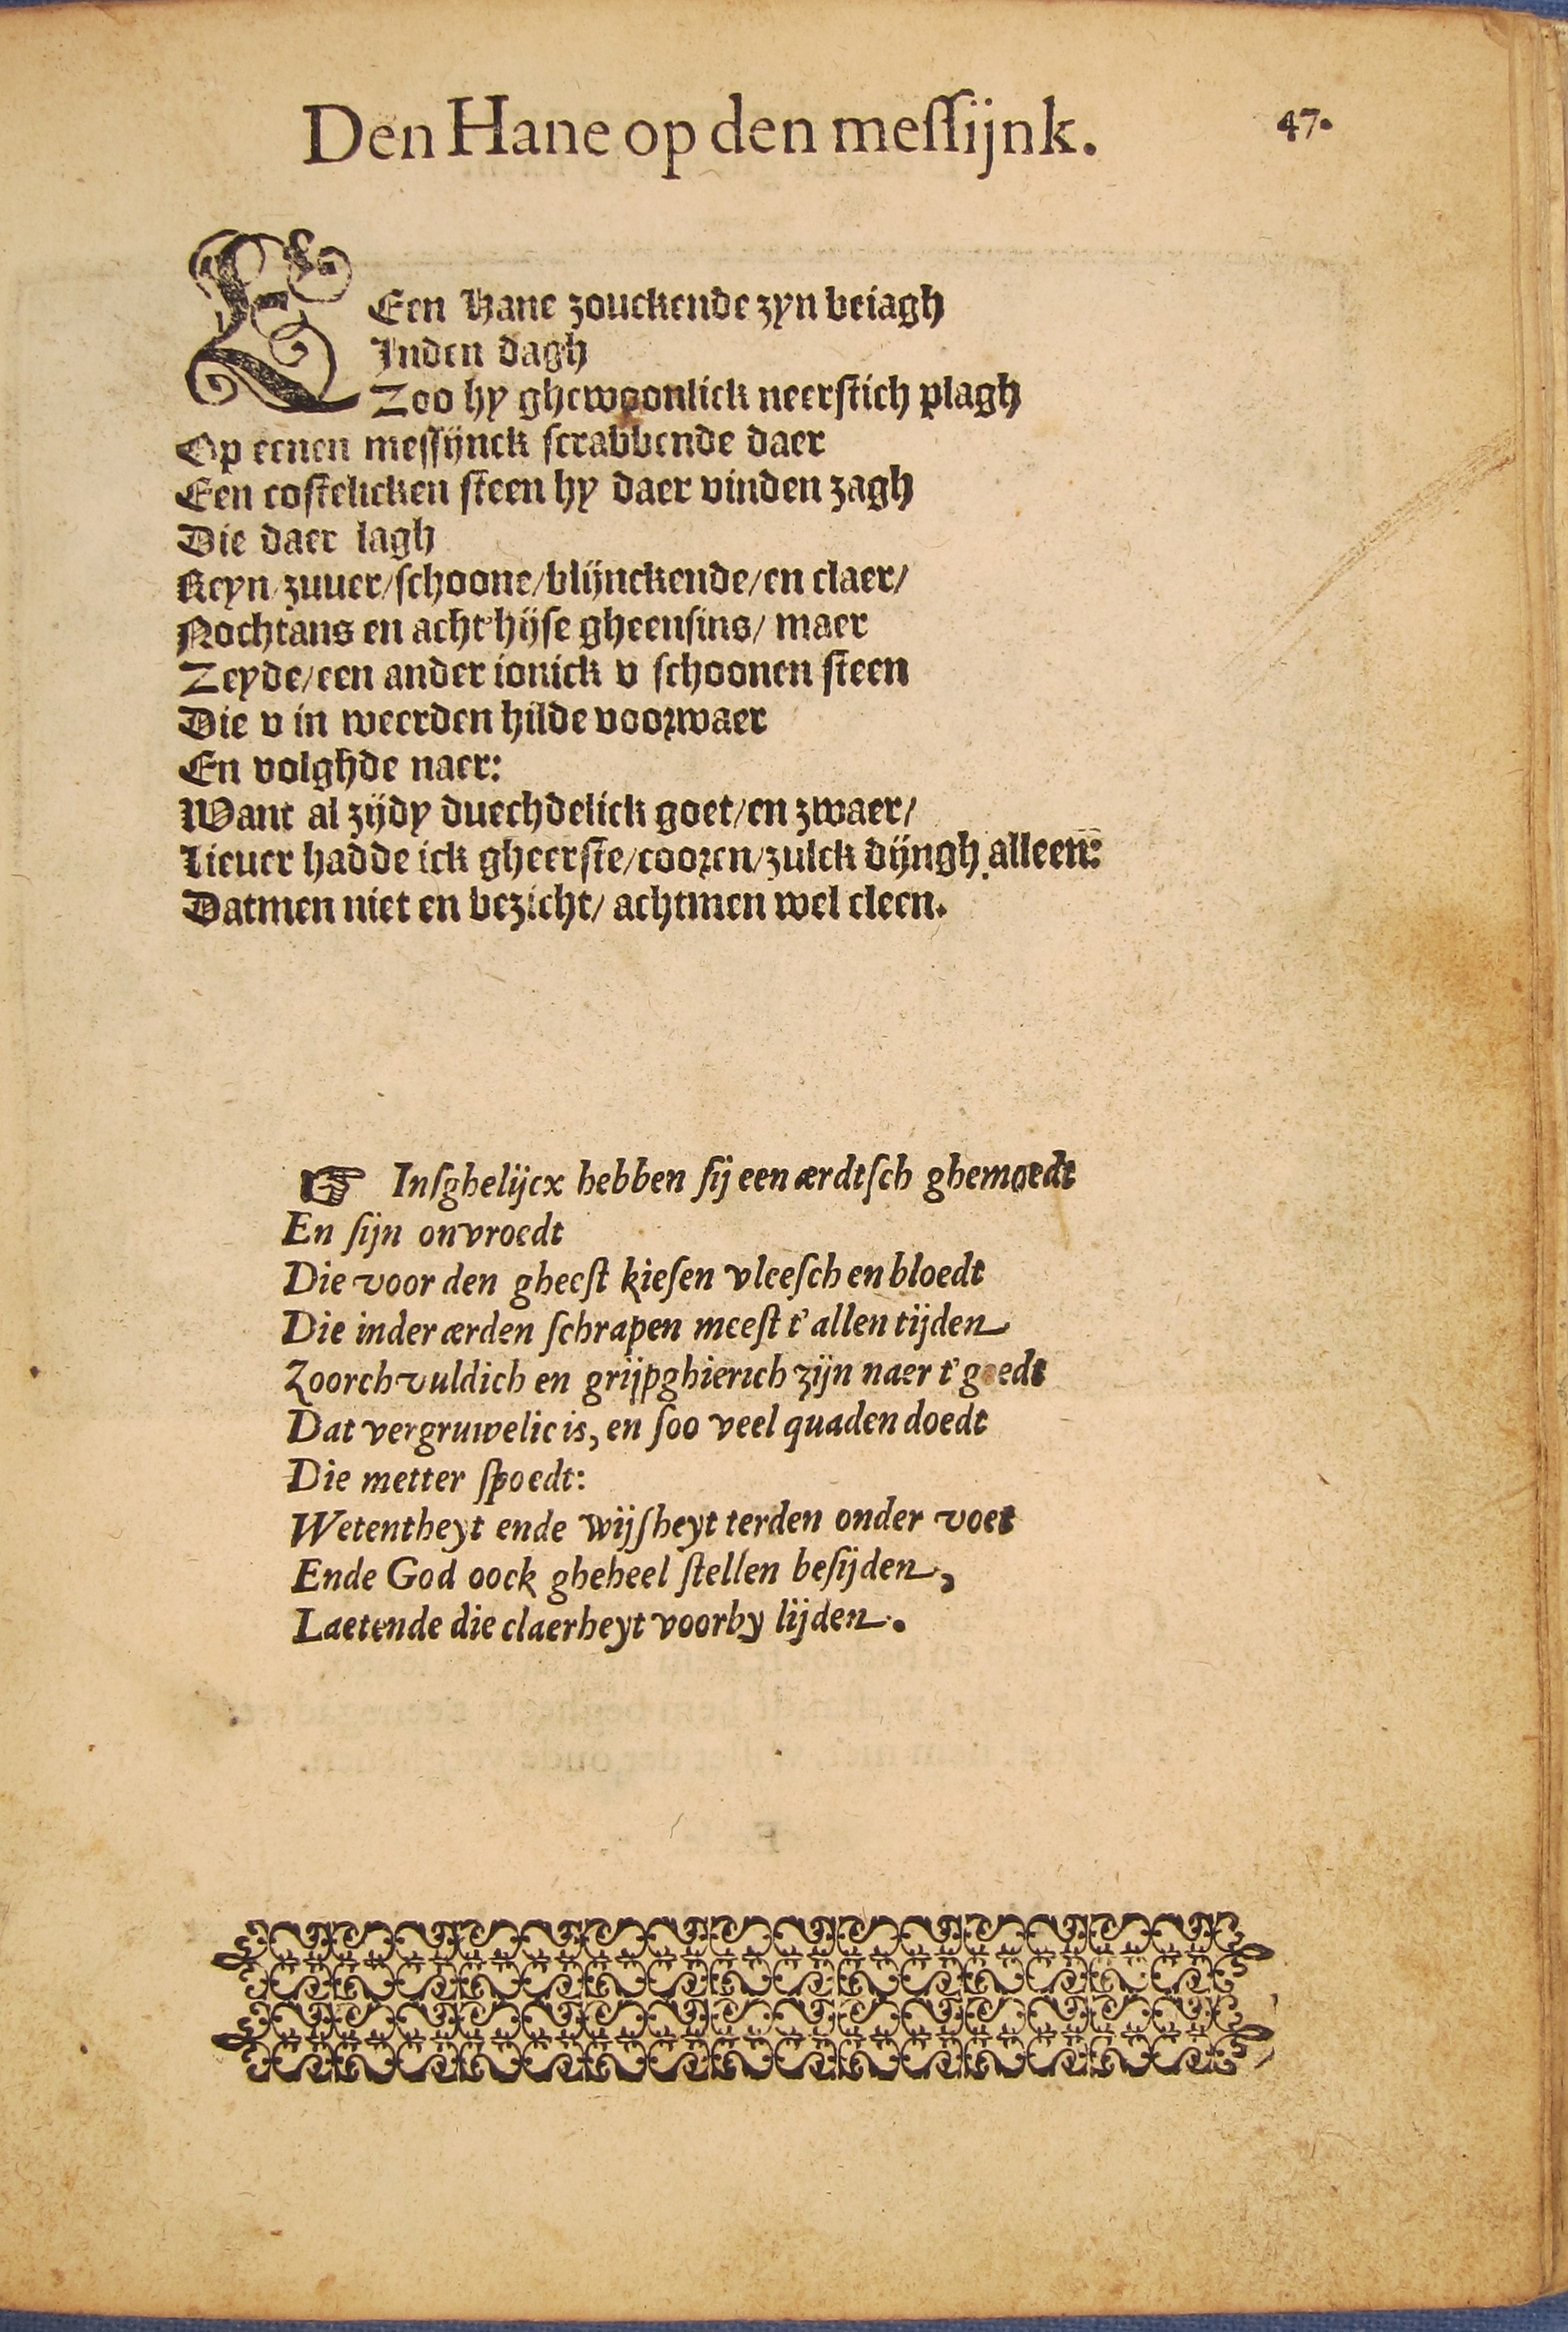 Den Hane op den meſſijnk.
47.
EEen Hane zouckende zyn beiagh
Inden dagh
Zoo hy ghewoonlick neerſtich plagh
Op eenen meſſijnck ſcrabbende daer
Een coſtelicken ſteen hy daer vinden zagh
Die daer lagh
Reyn/zuuer/ſchoone/blijnckende/en claer/
Nochtans en acht'hijſe gheenſins/ maer
Zeyde/een ander ionick v ſchoonen ſteen
Die v in weerden hilde voorwaer
En volghde naer:
Want al zijdy duechdelick goet/en zwaer/
Lieuer hadde ick gheerſte/cooren/zulck dijngh alleen:
Datmen niet en bezicht/ achtmen wel cleen.
☞ Inſghelijcx hebben ſij een ærdtſch ghemoedt
En ſijn onvroedt
Die voor den gheeſt kieſen vleeſch en bloedt
Die inder ærden ſchrapen meeſt t'allen tijden
Zoorchvuldich en grijpghierich zijn naer t'goedt
Dat vergruwelic is, en ſoo veel quaden doedt
Die metter ſpoedt:
Wetentheyt ende wijſheyt terden onder voet
Ende God oock gheheel ſtellen beſijden,
Laetende die claerheyt voorby lijden.